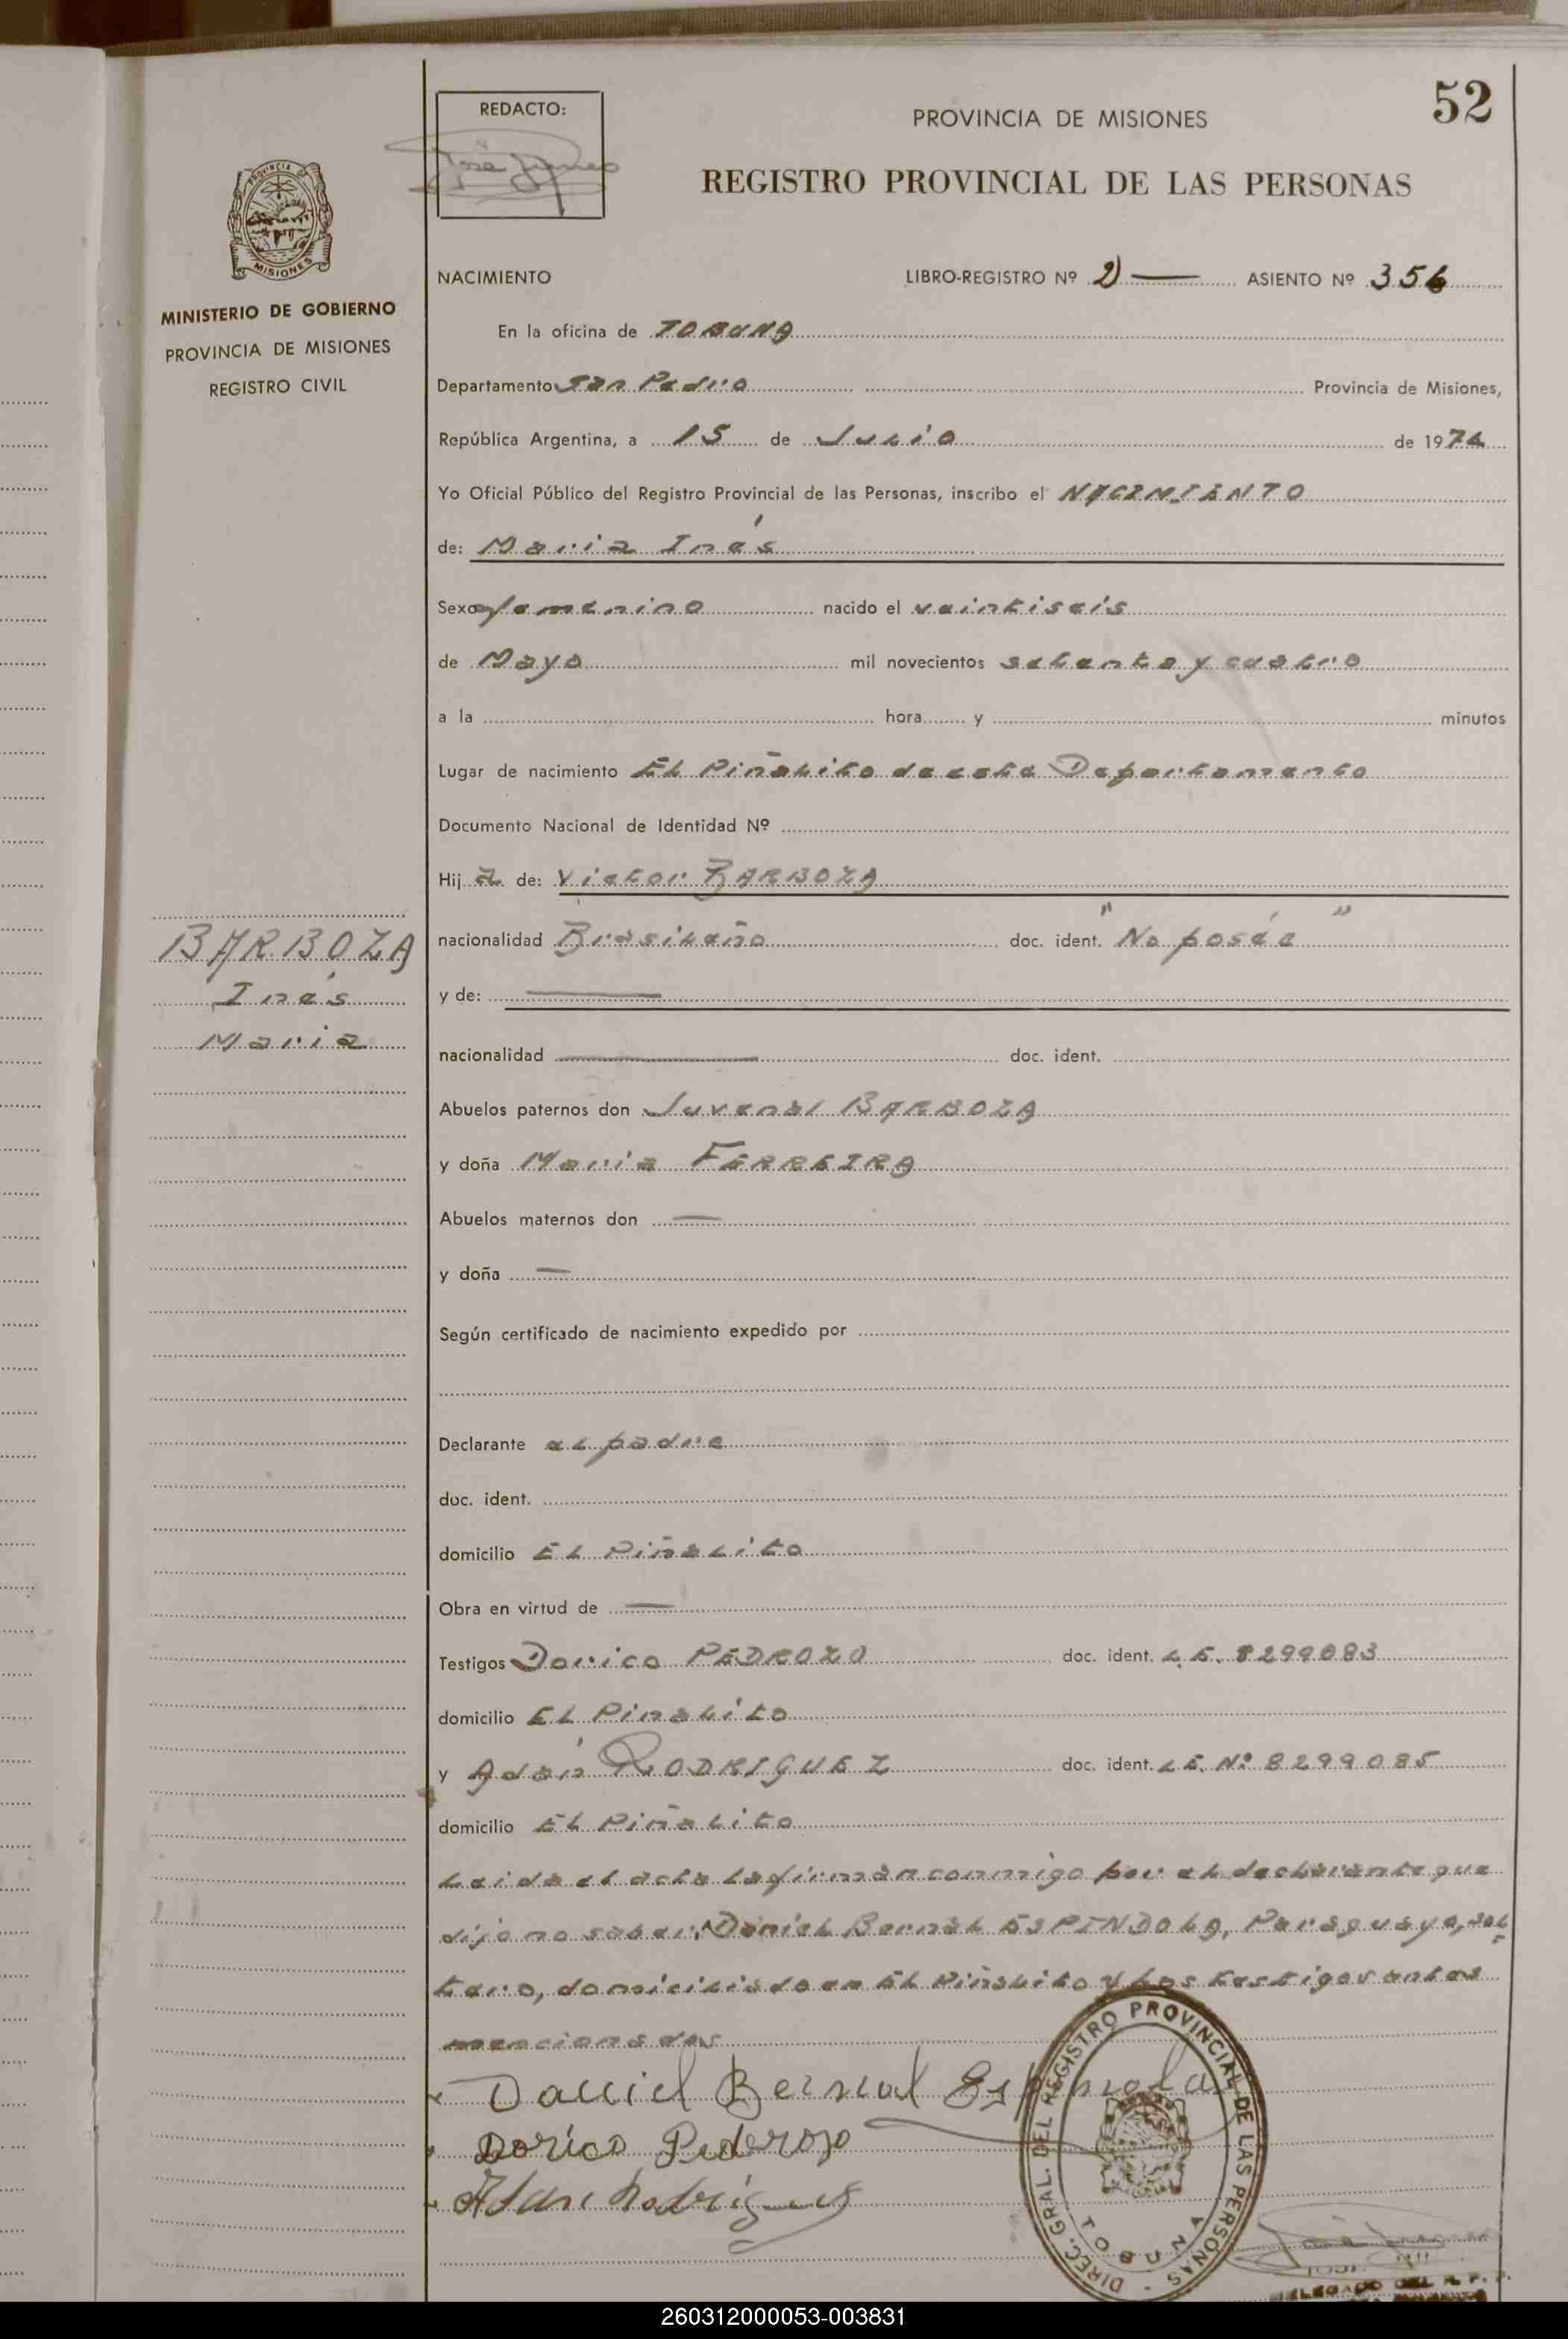 52
REDACTO:
PROVINCIA DE MISIONES
REGISTRO PROVINCIAL DE LAS PERSONAS
PROVINCIA DE
MISIONES
MINISTERIO DE GOBIERNO
PROVINCIA DE MISIONES
REGISTRO CIVIL
NACIMIENTO LIBRO-REGISTRO Nº 2) ASIENTO Nº 356
En la oficina de TOBUNA
Departamento San Pedro Provincia de Misiones,
República Argentina, a 15 de Julio de 1974
Yo Oficial Público del Registro Provincial de las Personas, inscribo el NACIMIENTO
de: Maria Inés
Sexo femenino nacido el veintiseis
de Mayo mil novecientos setenta y cuatro
a la hora y minutos
Lugar de nacimiento El Piñalito de este Departamento
Documento Nacional de Identidad Nº
Hij a de: Victor BARBOZA
nacionalidad Brasileño doc. ident. "No posée"
y de:
nacionalidad doc. ident.
BARBOZA
Inés
Maria
Abuelos paternos don Juvenal BARBOZA
y doña Maria FERREIRA
Abuelos maternos don
y doña
Según certificado de nacimiento expedido por
Declarante el padre
doc. ident.
domicilio El Piñalito
Obra en virtud de
Testigos Dorico PEDROZO doc. ident. L.E. 8299083
domicilio El Piñalito
y Adán RODRIGUEZ doc. ident. L.E. Nº 8299085
domicilio El Piñalito
Leida el acta la firman conmigo por el declarante que
dijo no saber: Daniel Bernal ESPINDOLA, Paraguayo, sol
tero, domiciliado en El Piñalito y los testigos antes
mencionados
Daniel Bernal Espinola
Dorico Pederozo
Adan Rodriguez
DIREC. GRAL. DEL REGISTRO PROVINCIAL DE LAS PERSONAS -
TOBUNA
DELEGADO DEL R. P.
260312000053-003831